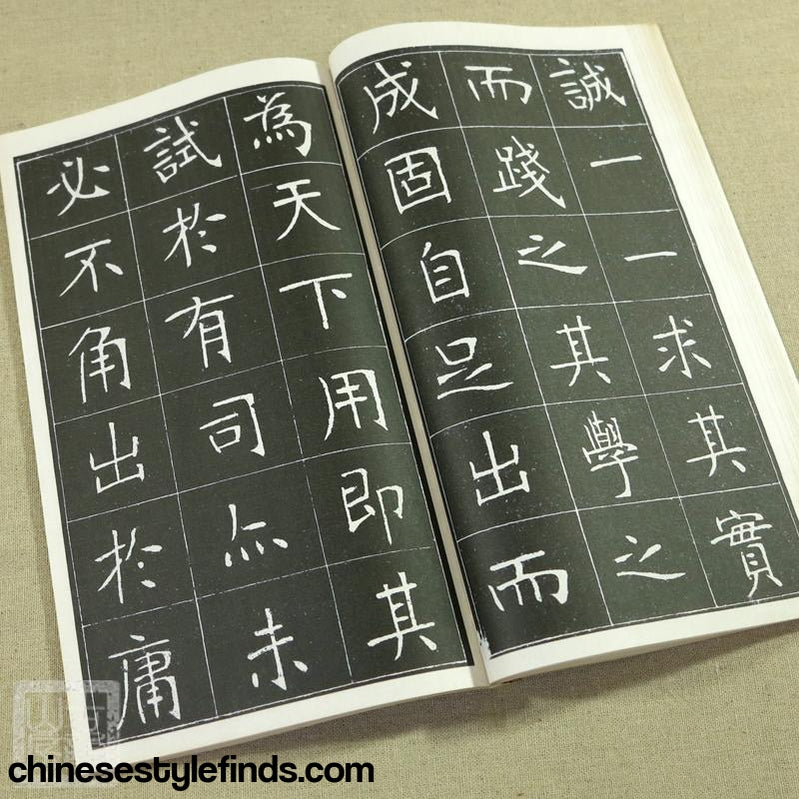 誠一一求其實
而踐之其學之
成固自足出而
為天下用即其
試於有司亦未
必不角出於庸
chinesestylefinds.com